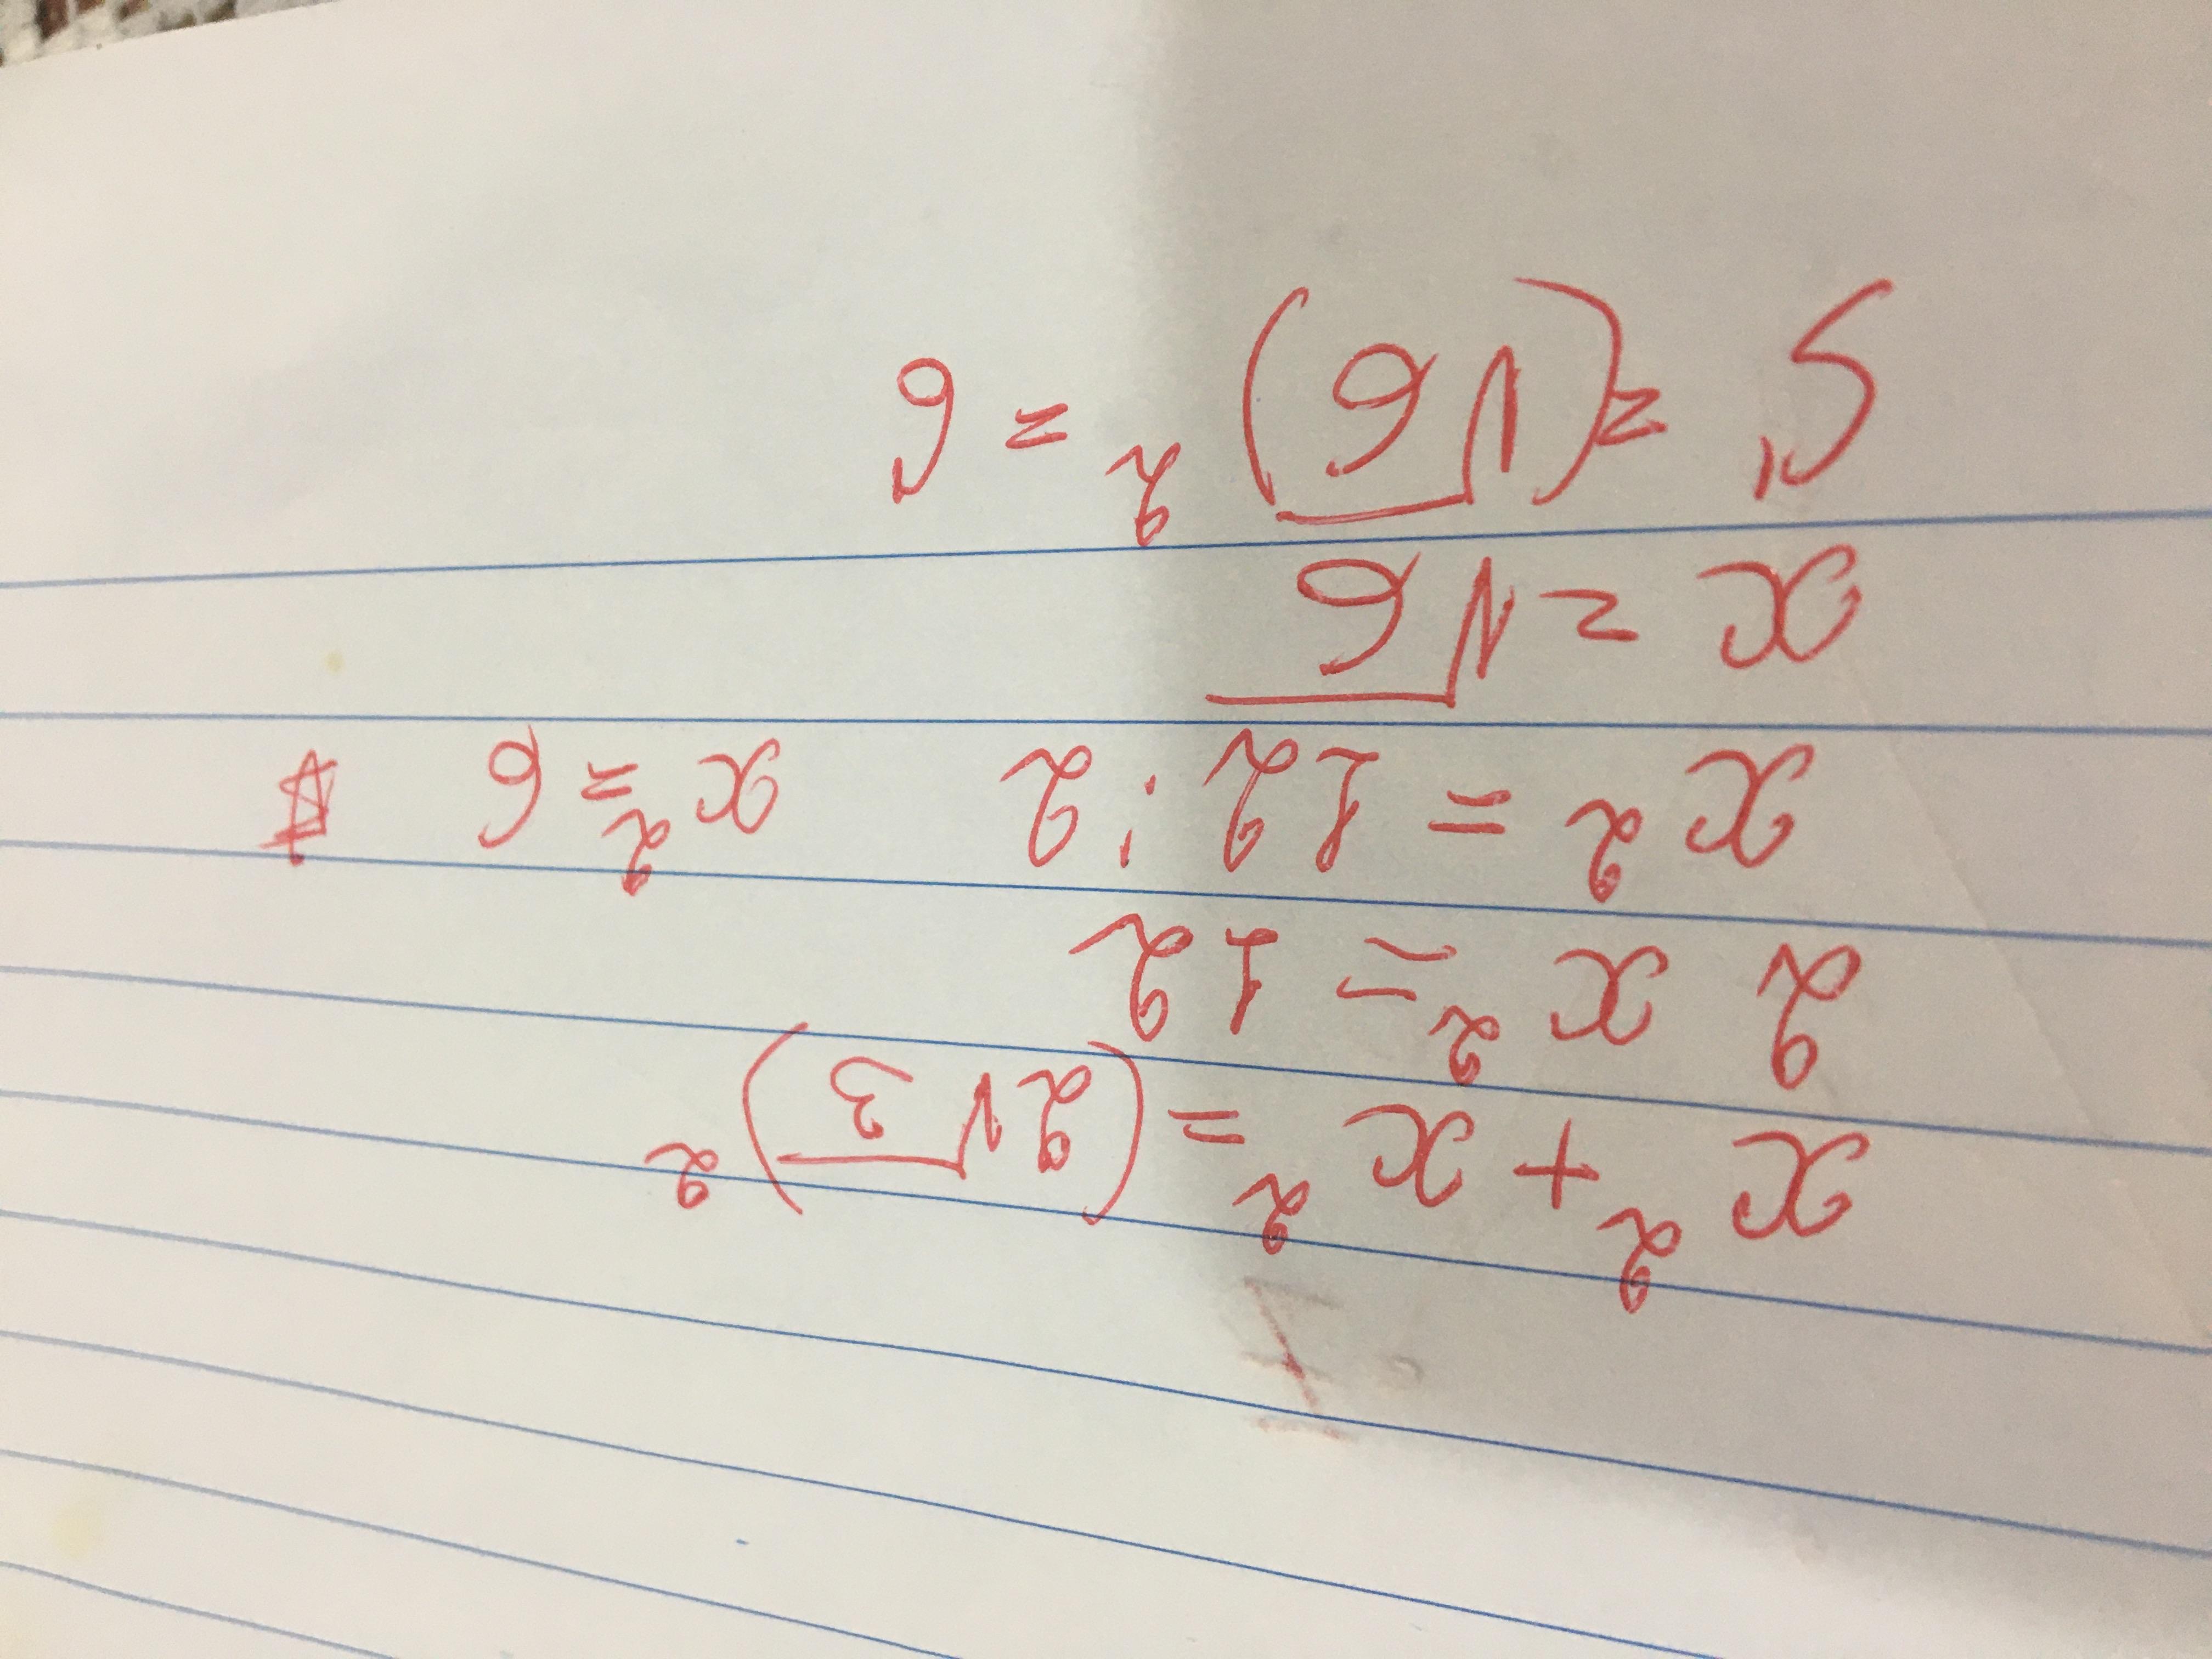 x² + x² = (2√3)²
2x² = 12
x² = 12 : 2 x² = 6
x = √6
S = (√6)² = 6